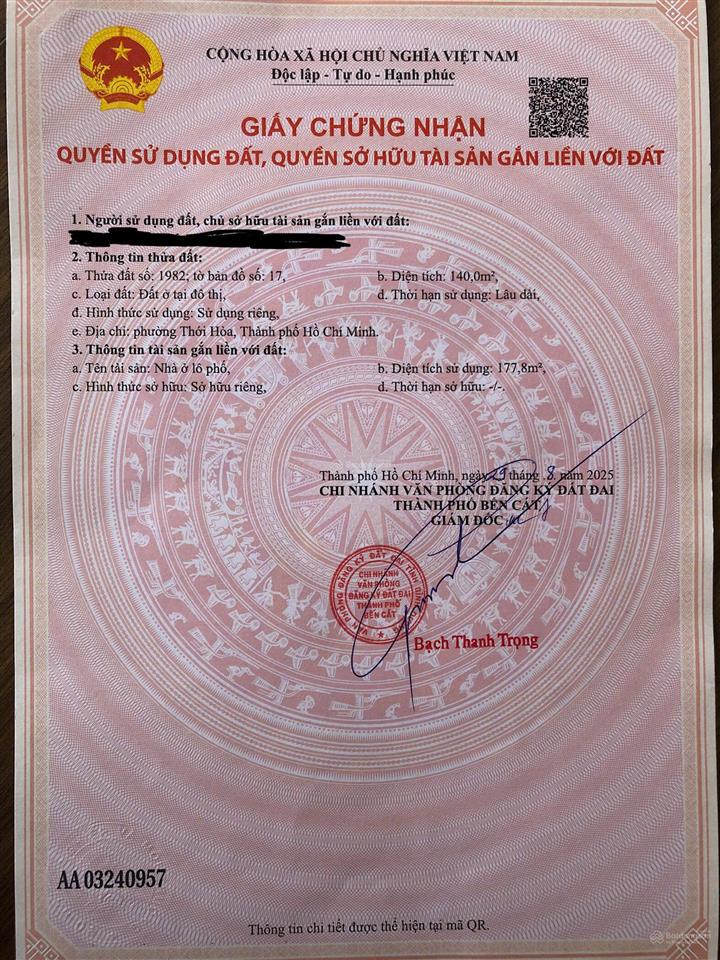 CỘNG HÒA XÃ HỘI CHỦ NGHĨA VIỆT NAM
Độc lập - Tự do - Hạnh phúc
GIẤY CHỨNG NHẬN
QUYỀN SỬ DỤNG ĐẤT, QUYỀN SỞ HỮU TÀI SẢN GẮN LIỀN VỚI ĐẤT
1. Người sử dụng đất, chủ sở hữu tài sản gắn liền với đất:
2. Thông tin thửa đất:
a. Thửa đất số: 1982; tờ bản đồ số: 17, b. Diện tích: 140,0m²,
c. Loại đất: Đất ở tại đô thị, d. Thời hạn sử dụng: Lâu dài,
đ. Hình thức sử dụng: Sử dụng riêng,
e. Địa chỉ: phường Thới Hòa, Thành phố Hồ Chí Minh.
3. Thông tin tài sản gắn liền với đất:
a. Tên tài sản: Nhà ở lô phố, b. Diện tích sử dụng: 177,8m²,
c. Hình thức sở hữu: Sở hữu riêng, d. Thời hạn sở hữu: -/-.
Thành phố Hồ Chí Minh, ngày 29 tháng 8 năm 2025
CHI NHÁNH VĂN PHÒNG ĐĂNG KÝ ĐẤT ĐAI
THÀNH PHỐ BẾN CÁT
GIÁM ĐỐC
VĂN PHÒNG ĐĂNG KÝ ĐẤT ĐAI TỈNH
CHI NHÁNH
VĂN PHÒNG
ĐĂNG KÝ ĐẤT ĐAI
THÀNH PHỐ
BẾN CÁT
Bạch Thanh Trọng
AA 03240957
Thông tin chi tiết được thể hiện tại mã QR.